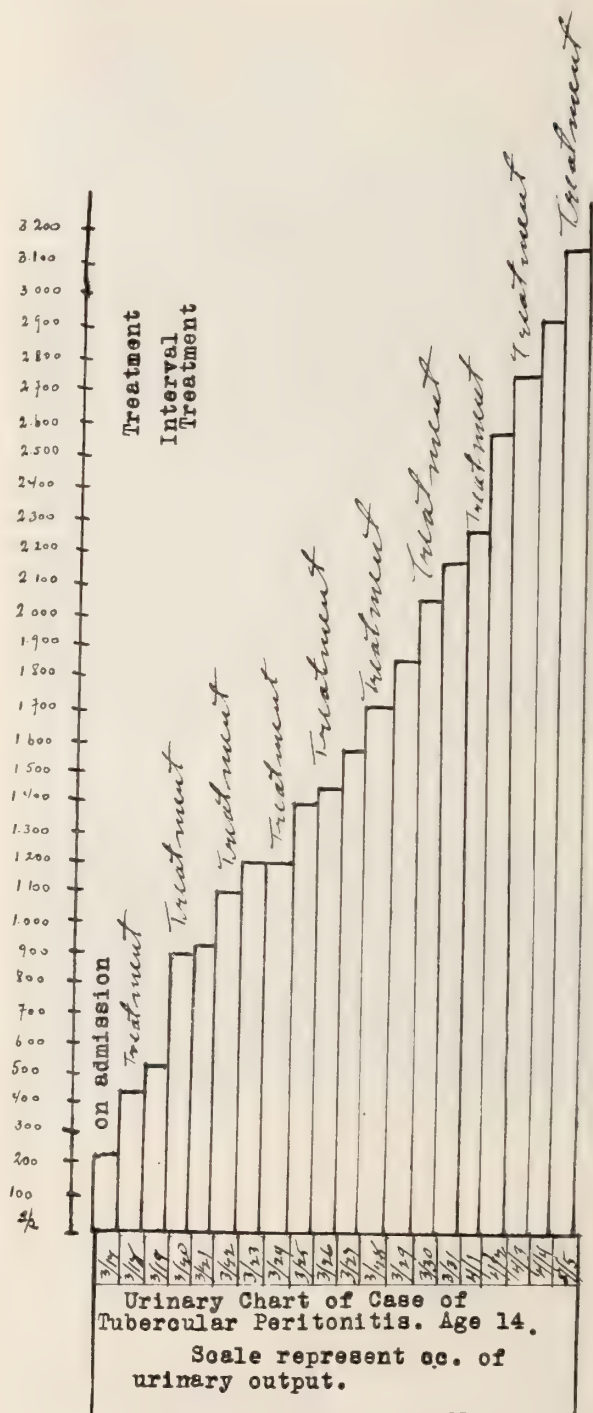 3200
3.100
3000
2900
2800
2.700
2.600
2.500
2400
2300
2200
2100
2000
1.900
1800
1700
1600
1500
1400
1.300
1200
1100
1.000
900
800
700
600
500
400
300
200
100
Treatment
Interval
Treatment
on admission
Treatment
Treatment
Treatment
Treatment
Treatment
Treatment
Treatment
Treatment
Treatment
Treatment
3/17
3/18
3/19
3/20
3/21
3/22
3/23
3/24
3/25
3/26
3/27
3/28
3/29
3/30
3/31
4/1
4/2
4/3
4/4
4/5
Urinary Chart of Case of
Tubercular Peritonitis. Age 14.
Scale represent cc. of
urinary output.